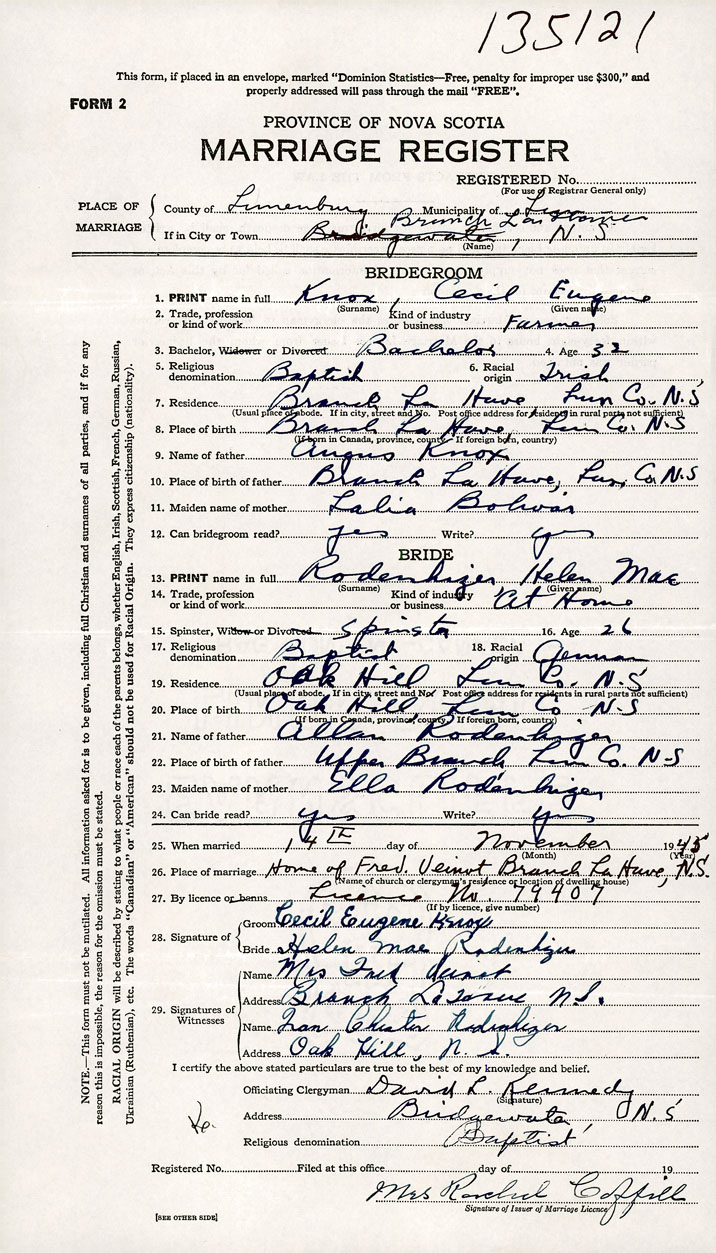 135121
This form, if placed in an envelope, marked “Dominion Statistics—Free, penalty for improper use $300,” and
properly addressed will pass through the mail “FREE”.
FORM 2
PROVINCE OF NOVA SCOTIA
MARRIAGE REGISTER
REGISTERED No.
(For use of Registrar General only)
PLACE OF MARRIAGE
County of Lunenburg Municipality of Lun
Branch La
If in City or Town Bridgewater, N.S
(Name)
BRIDEGROOM
1. PRINT name in full Knox, Cecil Eugene
(Surname) (Given name)
2. Trade, profession or kind of work Kind of industry or business Farmer
3. Bachelor, Widower or Divorced Bachelor 4. Age 32
5. Religious denomination Baptist 6. Racial origin Irish
7. Residence Branch La Have Lun Co. N.S
(Usual place of abode. If in city, street and No. Post office address for residents in rural parts not sufficient)
8. Place of birth Branch La Have, Lun Co. N.S
(If born in Canada, province, county. If foreign born, country)
9. Name of father Angus Knox
10. Place of birth of father Branch La Have, Lun, Co. N.S
11. Maiden name of mother Lalia Bolivar
12. Can bridegroom read? yes Write? yes
BRIDE
13. PRINT name in full Rodenhizer Helen Mae
(Surname) (Given name)
14. Trade, profession or kind of work Kind of industry or business At Home
15. Spinster, Widow or Divorced Spinster 16. Age 26
17. Religious denomination Baptist 18. Racial origin German
19. Residence Oak Hill Lun Co. N.S
(Usual place of abode. If in city, street and No. Post office address for residents in rural parts not sufficient)
20. Place of birth Oak Hill, Lun Co N-S
(If born in Canada, province, county. If foreign born, country)
21. Name of father Allan Rodenhizer
22. Place of birth of father Upper Branch Lun Co. N-S
23. Maiden name of mother Ella Rodenhizer
24. Can bride read? yes Write? yes
25. When married 14th day of November 1945
(Month) (Year)
26. Place of marriage Home of Fred Veinot Branch La Have, N.S.
(Name of church or clergyman's residence or location of dwelling house)
27. By licence or banns Licence No. 79407
(If by licence, give number)
28. Signature of
Groom Cecil Eugene Knox
Bride Helen Mae Rodenhizer
29. Signatures of Witnesses
Name Mrs Fred Veinot
Address Branch LaHave N.S.
Name Chester Rodenhizer
Address Oak Hill, N.S.
I certify the above stated particulars are true to the best of my knowledge and belief.
Officiating Clergyman David L. Kennedy
(Signature)
Address Bridgewater, N.S
Religious denomination Baptist
Registered No. Filed at this office day of 19
Mrs Rachel Coffill
Signature of Issuer of Marriage Licence
[SEE OTHER SIDE]
NOTE.—This form must not be mutilated. All information asked for is to be given, including full Christian and surnames of all parties, and if for any
reason this is impossible, the reason for the omission must be stated.
RACIAL ORIGIN will be described by stating to what people or race each of the parents belongs, whether English, Irish, Scottish, French, German, Russian,
Ukrainian (Ruthenian), etc. The words “Canadian” or “American” should not be used for Racial Origin. They express citizenship (nationality).